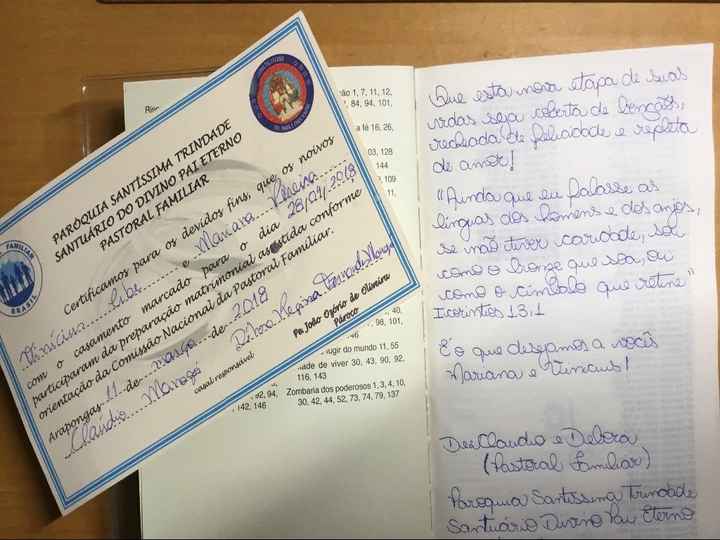 PARÓQUIA SANTÍSSIMA TRINDADE
SANTUÁRIO DO DIVINO PAI ETERNO
PASTORAL FAMILIAR
Certificamos para os devidos fins, que os noivos
Vinícius Libe e Mariana Pereira
com o casamento marcado para o dia 28/09/2018
participaram da preparação matrimonial assistida conforme
orientação da Comissão Nacional da Pastoral Familiar.
Arapongas 11 de março de 2018
Claudio Débora Regina Fernandes
casal responsável
Pe. João Ozório de Oliveira
Pároco
FAMILIAR
BRASIL
ão 1, 7, 11, 12,
84, 94, 101,
a fé 16, 26,
03, 128
144
109
11,
40,
98, 101,
fugir do mundo 11, 55
dade de viver 30, 43, 90, 92,
116, 143
Zombaria dos poderosos 1, 3, 4, 10,
30, 42, 44, 52, 73, 74, 79, 137
92, 94,
142, 146
Que esta nova etapa de suas
vidas seja coberta de bençãos,
recheada de felicidade e repleta
de amor!
"Ainda que eu falasse as
línguas dos homens e dos anjos,
se não tiver caridade, sou
como o bronze que soa, ou
como o címbalo que retine"
I corintios 13,1
É o que desejamos a vocês
Mariana e Vinicius!
De: Claudio e Debora
(Pastoral Familiar)
Paroquia Santissima Trindade
Santuário Divino Pai Eterno